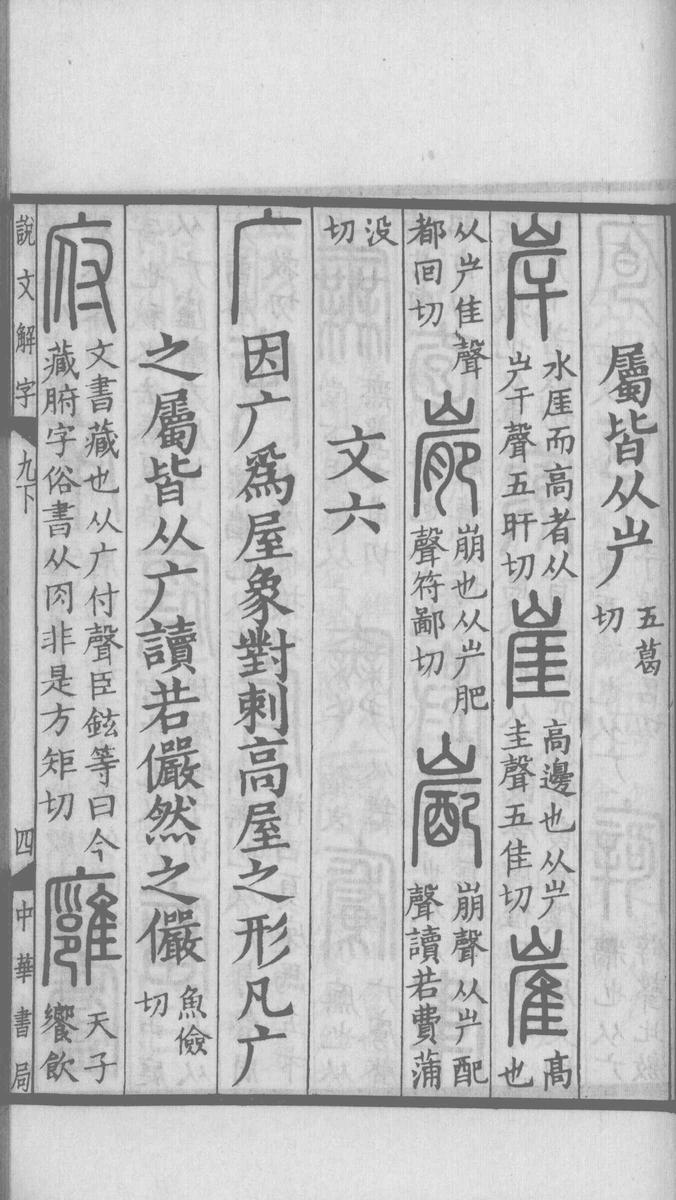 屬皆从屵五葛切
岸水厓而高者从屵干聲五旰切崖高邊也从屵圭聲五佳切嶊高也
从屵隹聲都回切嶏崩也从屵肥聲符鄙切嶏崩聲从屵配聲讀若費蒲
没切
文六
广因广爲屋象對刺高屋之形凡广
之屬皆从广讀若儼然之儼魚儉切
府文書藏也从广付聲臣鉉等曰今藏腑字俗書从肉非是方矩切廱天子饗飲
說文解字
九下
四
中華書局